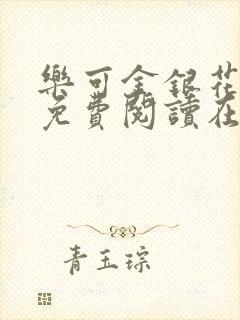 樂可金銀花
免費閱讀在
青玉琮